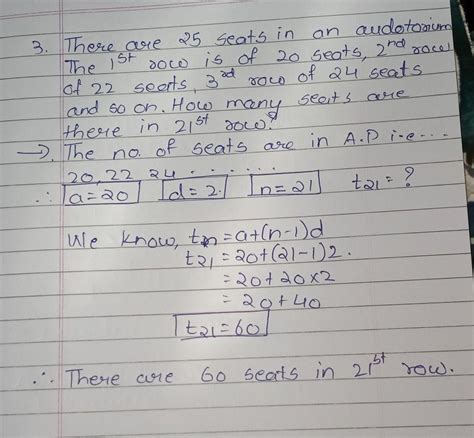 3. There are 25 seats in an audotorium
The 1st row is of 20 seats, 2nd row
of 22 seats, 3rd row of 24 seats
and so on. How many seats are
there in 21st row?
→. The no. of seats are in A.P i-e---
20, 22 24 . . . . . .
∴ a=20 d=2. n=21 t21=?
We know, tn=a+(n-1)d
t21=20+(21-1)2.
=20+20×2
= 20+40
t21=60
∴ There are 60 seats in 21st row.